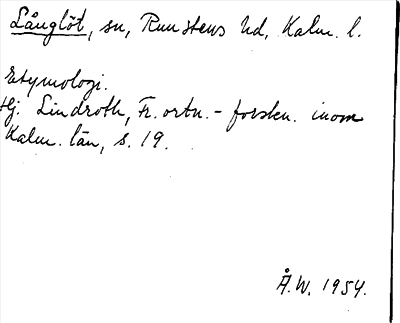 Långlöt, sn, Runstens hd, Kalm. l.
Etymologi.
Hj. Lindroth, Fr. ortn.-forskn. inom
Kalm. län, s. 19.
Å.W. 1954.